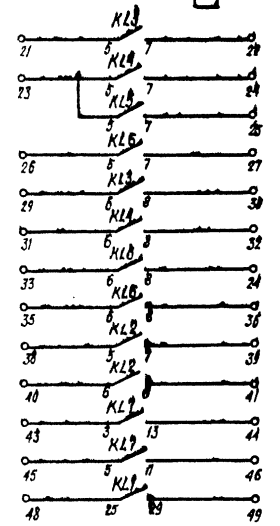 KL3
21 5 7 22
KL4
23 5 7 24
KL5
5 7 25
KL6
26 5 7 27
KL3
29 6 8 30
KL4
31 6 8 32
KL8
33 6 8 24
KL6
35 6 36
KL2
38 5 7 39
KL2
40 6 41
KL7
43 3 13 44
KL7
45 5 11 46
KL1
48 25 29 49